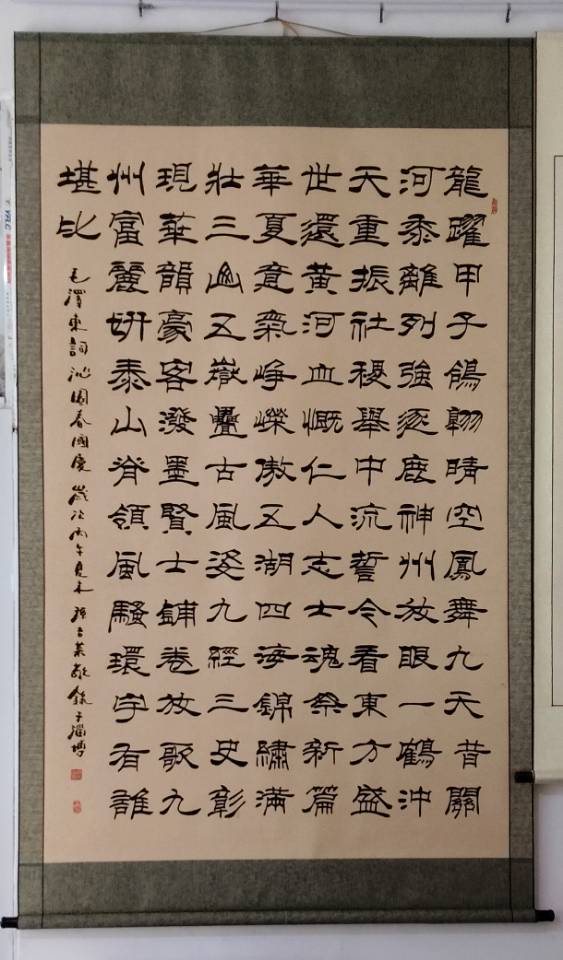 龍躍甲子鴿翱晴空鳳舞九天昔關
河黍離列強逐鹿神州放眼一鶴沖
天重振社稷舉中流誓令看東方盛
世還黃河血慨仁人志士魂祭新篇
華夏意氣崢嶸傲五湖四海錦繡滿
壯三山五嶽疊古風姿九經三史彰
現華韻豪客潑墨賢士鋪卷放歌九
州富麗妍泰山脊領風騷環宇有誰
堪比
毛澤東詞沁園春國慶歲次丙午夏末敬錄于淄博